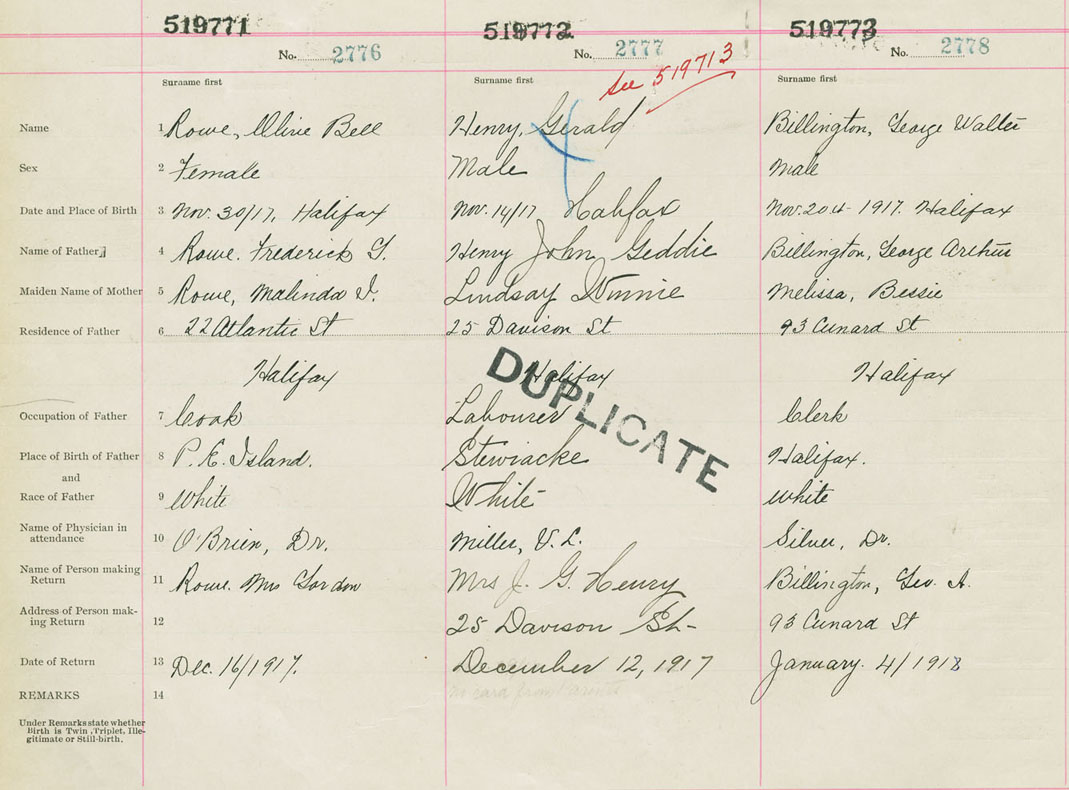 519771 519772 519773
No. 2776 No. 2777 No. 2778
see 519713
Surname first Surname first Surname first
Name 1 Rowe, Olive Bell Henry, Gerald Billington, George Walter
Sex 2 Female Male male
Date and Place of Birth 3 Nov. 30/17, Halifax Nov. 14/17 Halifax Nov. 20th 1917. Halifax
Name of Father 4 Rowe. Frederick G. Henry John Geddie Billington, George Arthur
Maiden Name of Mother 5 Rowe, Malinda J. Lindsay Winnie Melissa, Bessie
Residence of Father 6 22 Atlantic St 25 Davison St 93 Cunard St
Halifax Halifax Halifax
DUPLICATE
Occupation of Father 7 Cook Labourer Clerk
Place of Birth of Father 8 P. E. Island. Stewiacke Halifax.
and
Race of Father 9 White White white
Name of Physician in
attendance 10 O'Brien, Dr. Miller, V. L. Silver, Dr.
Name of Person making
Return 11 Rowe. Mrs Gordon Mrs J. G. Henry Billington, Geo. A.
Address of Person mak-
ing Return 12 25 Davison St- 93 Cunard St
Date of Return 13 Dec. 16/1917. December 12, 1917 January. 4/1918
REMARKS 14 no card from
Under Remarks state whether
Birth is Twin, Triplet, Ille-
gitimate or Still-birth.